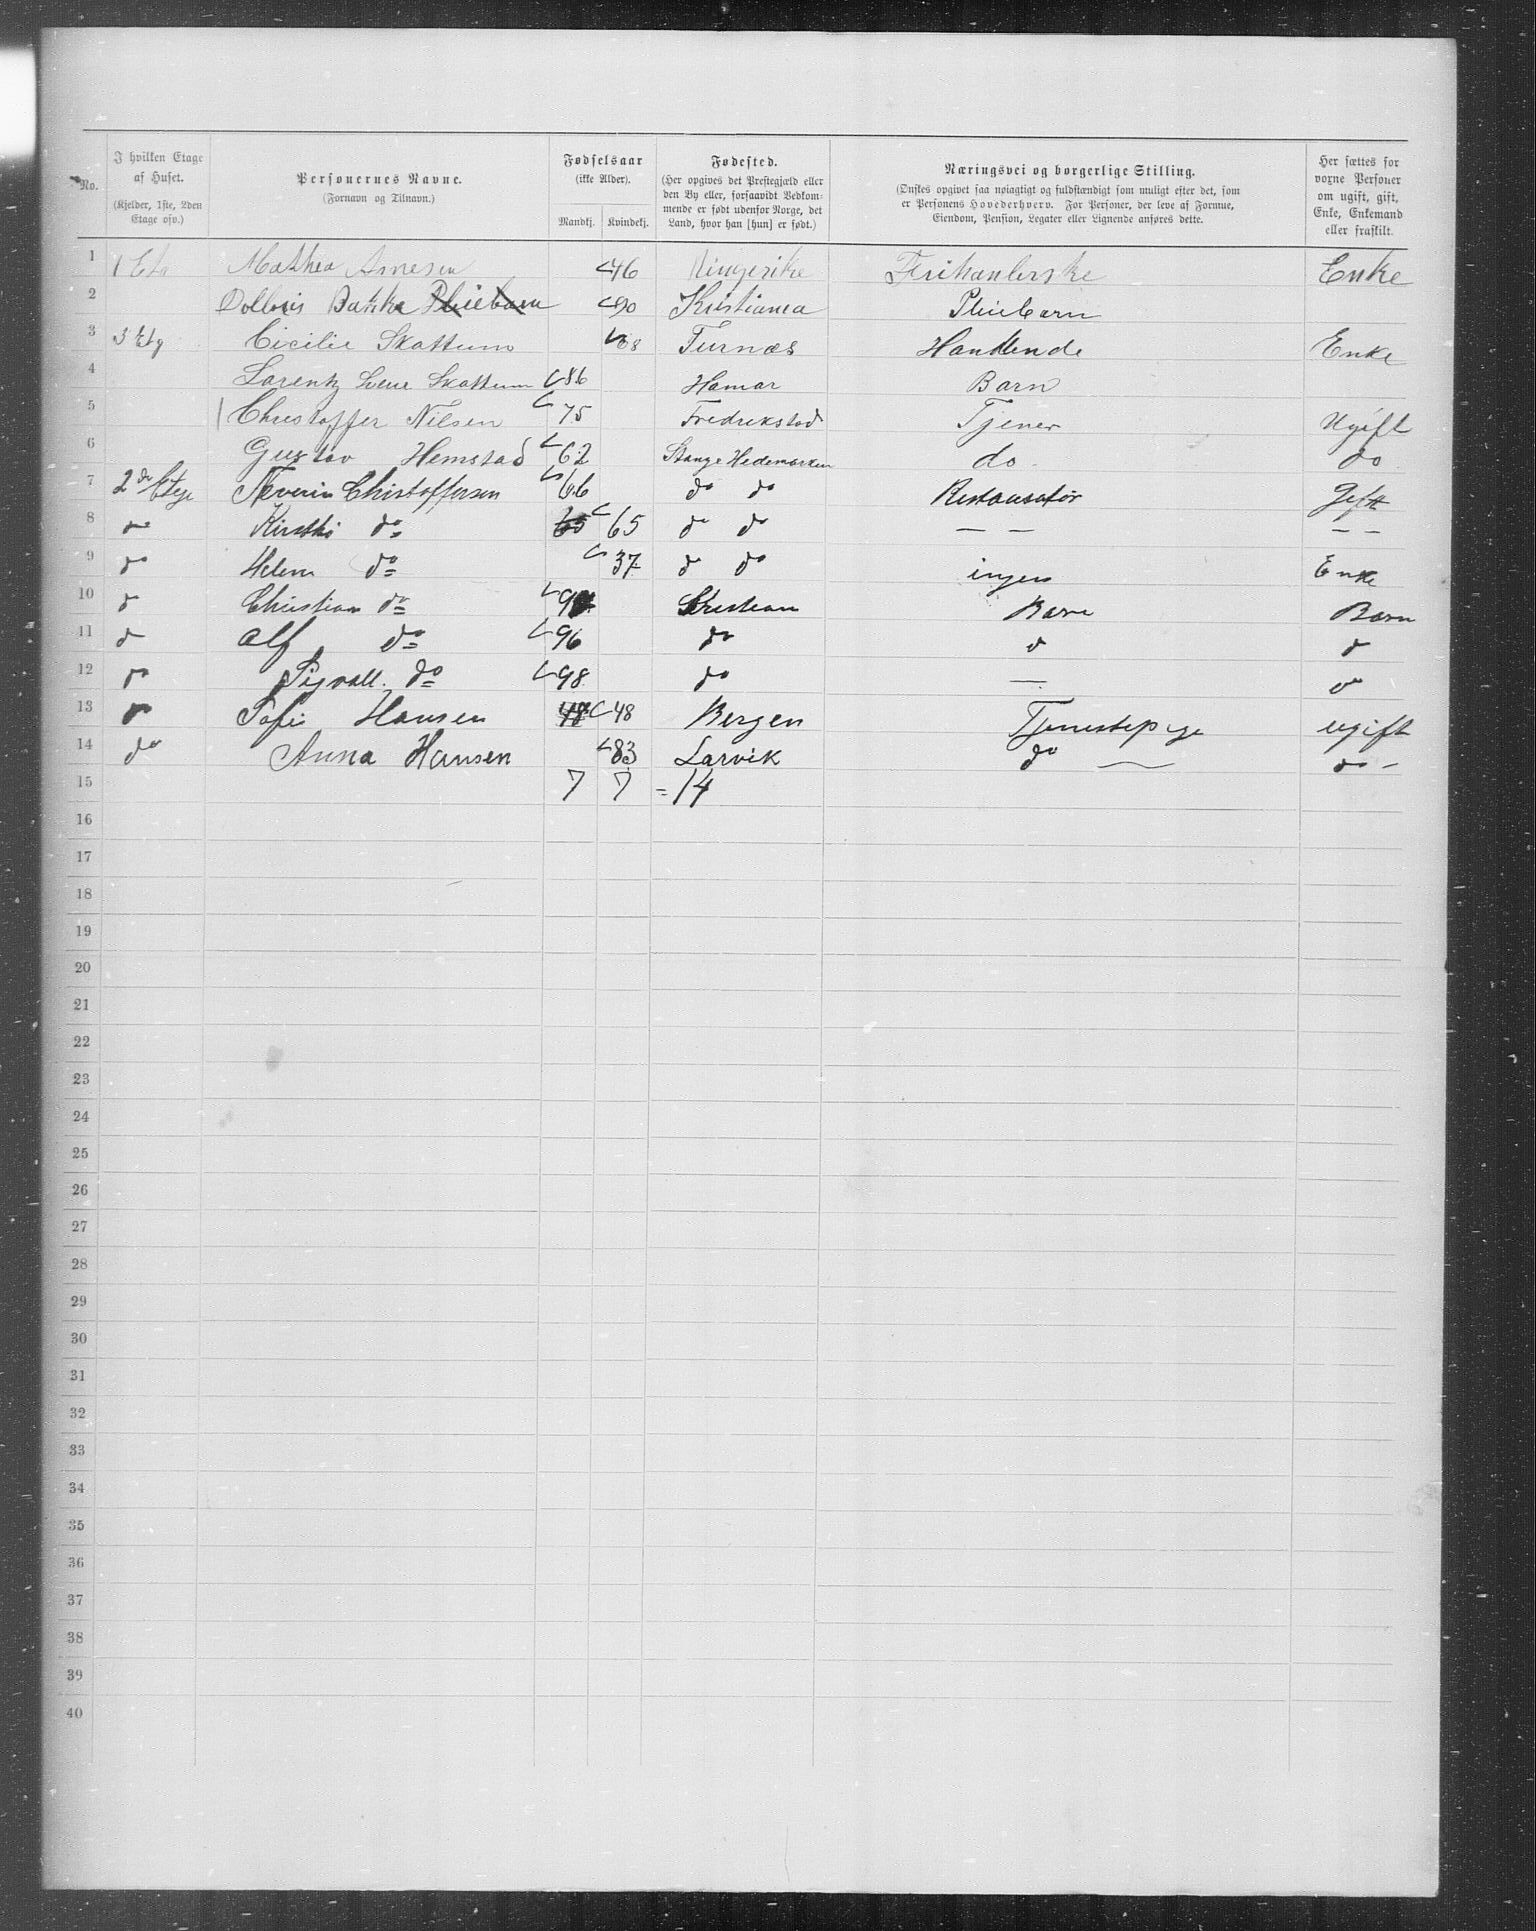 No. I hvilken Etage af Huset. (Kjelder, 1ste, 2den Etage osv.) Personernes Navne. (Fornavn og Tilnavn.) Fødselsaar (ikke Alder). Mandkj. Kvindekj. Fødested. (Her opgives det Prestegjæld eller den By eller, forsaavidt Vedkommende er født udenfor Norge, det Land, hvor han [hun] er født.) Næringsvei og borgerlige Stilling. (Ønskes opgivet saa nøiagtigt og fuldstændigt som muligt efter det, som er Personens Hovederhverv. For Personer, der leve af Formue, Eiendom, Pension, Legater eller Lignende anføres dette. Her sættes for voxne Personer om ugift, gift, Enke, Enkemand eller fraskilt.
1 1 Etg Mathea Arnesen 46 Ringerike Enke
2 Bakke Pleiebarn 90 Kristiania Pleiebarn
3 3 Etg Cicilie Skattum 68 Furnæs Handlende Enke
4 Lorentz Skattum 86 Hamar Barn
5 Christoffer Nilsen 75 Fredrikstad Tjener Ugift
6 Gustav Hemstad 62 Stange Hedemarken do. do
7 2den Etage Severin Christoffersen 66 do do Restauratør Gift
8 do do 65 65 do do — — — —
9 do Helene do 37 do do ingen Enke
10 do Christian do Kristiania Barn Barn
11 do Alf do 96 do do do
12 do Sigvall. do 98 do — do
13 do Sofie Hansen 48 48 Bergen Tjenestepige ugift
14 do Anna Hansen 83 Larvik do — do -
15 7 7 = 14
16
17
18
19
20
21
22
23
24
25
26
27
28
29
30
31
32
33
34
35
36
37
38
39
40